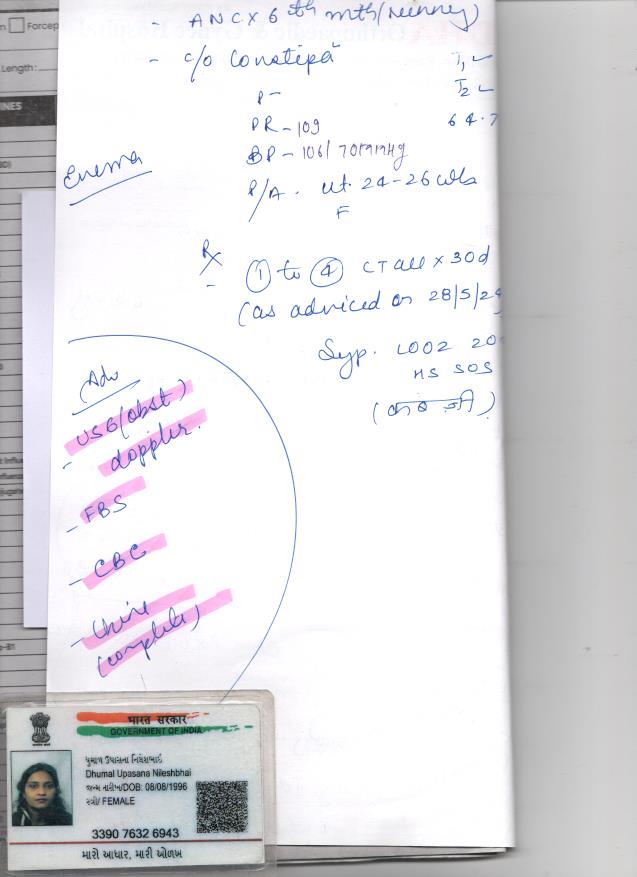 - ANC x 6th mth (running)
- c/o Constipa
T1 ✓
P -
T2 ✓
PR - 109
64.7
BP - 106/70mmHg
Enema
P/A. ut. 24-26 wks
F
Rx
① to ④ CT all x 30d
(as adviced on 28/5/2
Syp. LOOZ 20
HS SOS
Adv
- USG (obst)
doppler.
- FBS
- CBC
- Urine
(complete)
Forcep
Length:
INES
भारत सरकार
GOVERNMENT OF INDIA
ધુમાળ ઉપાસના નિલેશભાઈ
Dhumal Upasana Nileshbhai
જન્મ તારીખ/DOB: 08/08/1996
સ્ત્રી/ FEMALE
3390 7632 6943
મારો આધાર, મારી ઓળખ